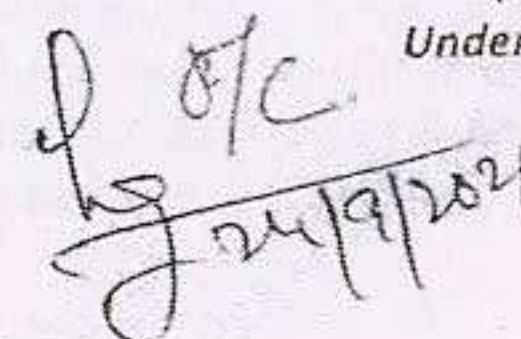 Under
O/C
24/9/202